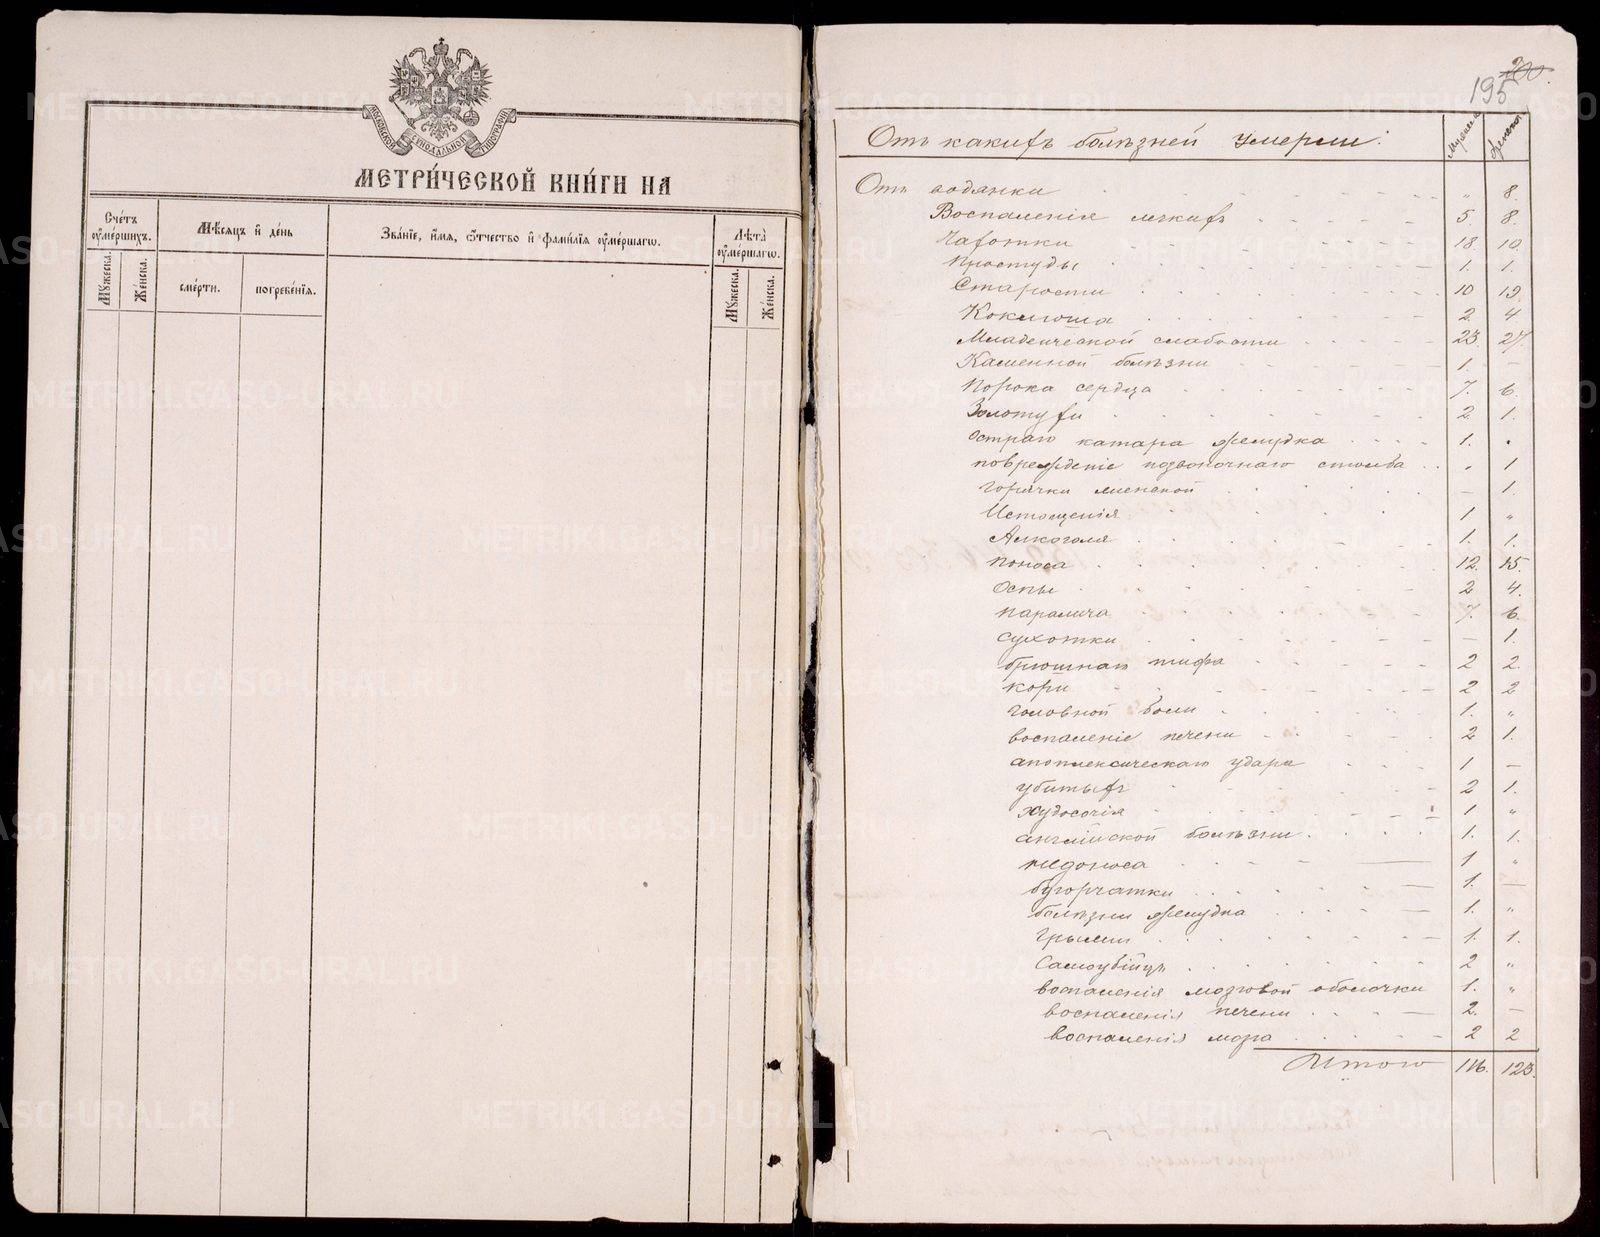 МОСКОВСКОЙ СѴНОДАЛЬНОЙ ТИПОГРАФІИ
МЕТРИ́ЧЕСКОЙ КНИ́ГИ НА
Сче́тъ ѹ҆ме́ршихъ.
Мꙋ́жеска.
Же́нска.
Мѣ́сяцъ и҆ де́нь
сме́рти.
погребе́нїѧ.
Зва́нїе, и҆́мѧ, ѻ҆́тчество и҆ фами́лїѧ ѹ҆ме́ршагѡ.
Лѣ́та ѹ҆ме́ршагѡ.
Мꙋ́жеска.
Же́нска.
200.
195
Отъ какихъ болѣзней умерли: Мужска Женска
Отъ водянки „ 8.
Воспаленія легкихъ 5 8.
Чахотки 18. 10.
Простуды 1. 1.
Старости 10 19.
Коклюша 2. 4
Младенческой слабости 23. 27.
Каменной болѣзни 1. —
Порока сердца 7. 6.
Золотухи 2. 1.
Остраго катара желудка 1. „
поврежденіе позвоночнаго столба „ 1
Горячки — 1.
Истощенія 1 „
Алкоголя 1. 1.
Поноса 12. 15.
Оспы 2 4.
паралича 7. 6
сухотки — 1.
брюшнаго тифа 2 2.
кори 2 2
головной боли 1. „
воспаленіе печени 2 1.
апоплексическаго удара 1 —
убитыхъ 2 1.
худосочія 1 „
англійской болѣзни 1. 1.
недоноса 1 „
бугорчатки 1. —
болѣзни желудка 1. „
грыжи 1. 1.
Самоубійцъ 2 „
воспаленія мозговой оболочки 1. „
воспаленія печени 2. —
воспаленія мозга 2 2
Итого 116. 123.
METRIKI.GASO-URAL.RU